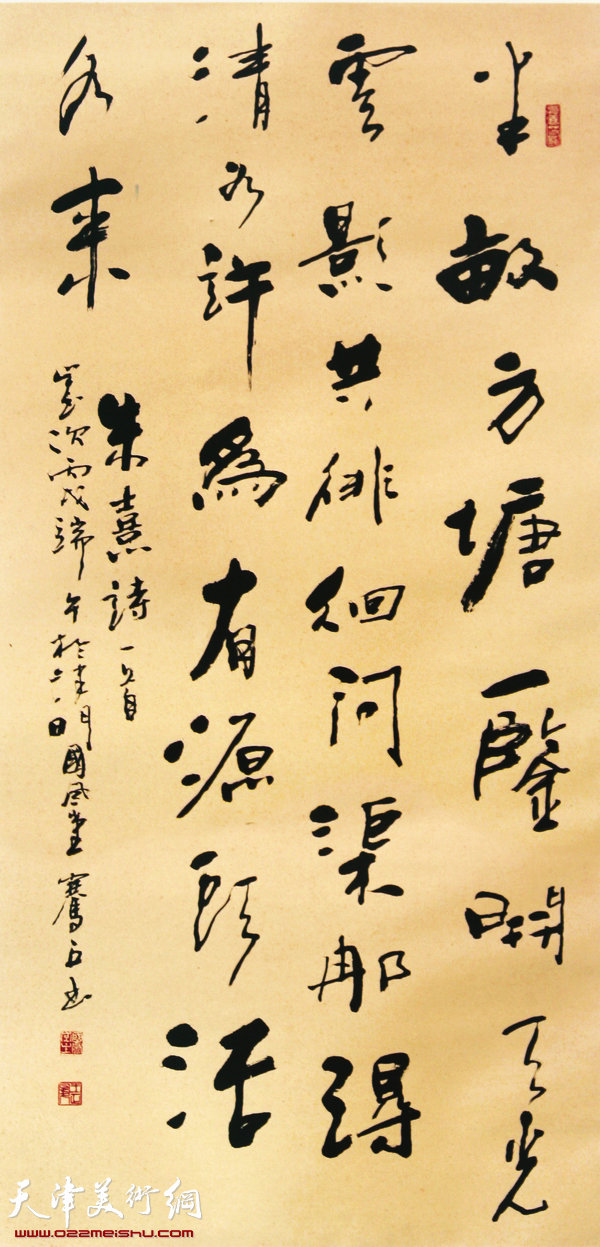 半畝方塘一鑒開天光
雲影共徘徊問渠那得
清如許為有源頭活
水來
朱熹詩一首
歲次丙戌端午於國風堂書
天津美術網
www.022meishu.com